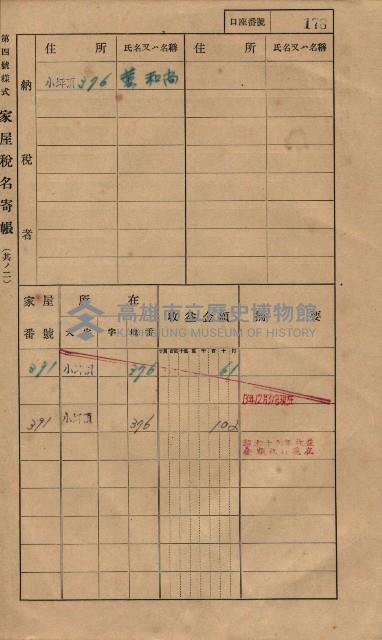 口座番號 176
第四號樣式 家屋稅名寄帳 (其ノ二)
住所 氏名又ハ名稱 住所 氏名又ハ名稱
納稅者
小坪頂396 葉和尚
家屋番號 所在 大字 字 地番 收益金額 摘要
高雄市立歷史博物館
KAOHSIUNG MUSEUM OF HISTORY
391 小坪頂 396 61
391 小坪頂 396 102